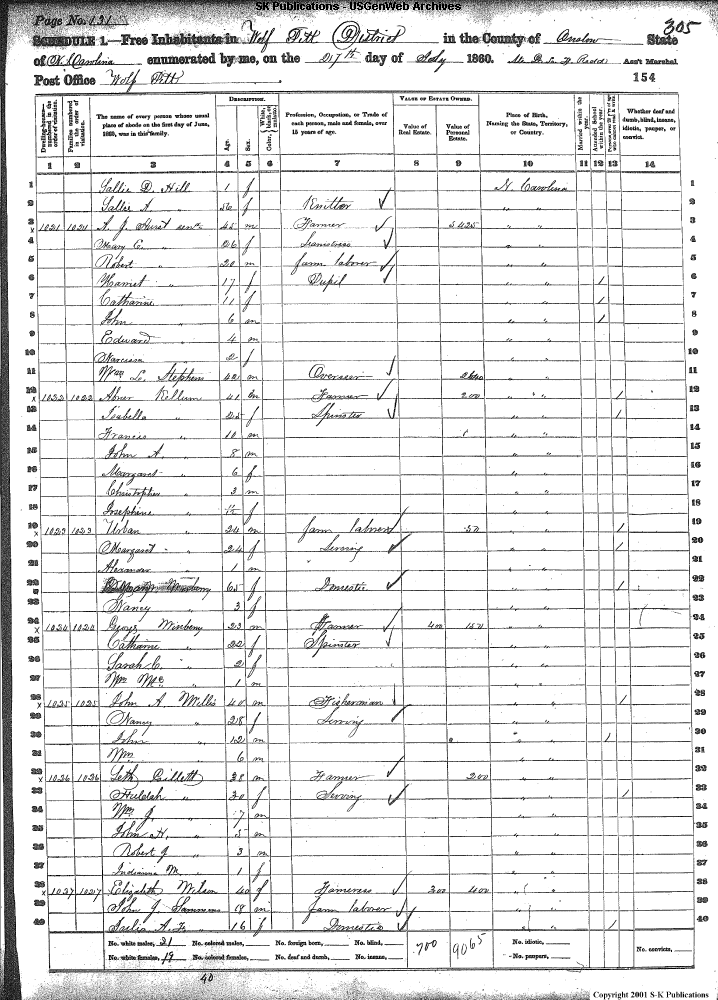 SK Publications - USGenWeb Archives
Page No. 131
305
SCHEDULE 1.—Free Inhabitants in Wolf Pitt District in the County of Onslow State
of N. Carolina enumerated by me, on the 27th day of July 1860. Ass't Marshal
Post Office Wolf Pitt 154
Dwelling-houses—numbered in the order of visitation.
Families numbered in the order of visitation.
The name of every person whose usual place of abode on the first day of June, 1860, was in this family.
DESCRIPTION.
Age.
Sex.
Color, White, black, or mulatto.
Profession, Occupation, or Trade of each person, male and female, over 15 years of age.
VALUE OF ESTATE OWNED.
Value of Real Estate.
Value of Personal Estate.
Place of Birth, Naming the State, Territory, or Country.
Married within the year.
Attended School within the year.
Whether deaf and dumb, blind, insane, idiotic, pauper, or convict.
1 2 3 4 5 6 7 8 9 10 11 12 13 14
1 Sallie D. Hill 1 f N. Carolina 1
2 Sallie A. f Knitter " " 2
3 1021 1021 A. J. Hurst 45 m Farmer " " 3
4 Mary E. " 26 f Seamstress " " 4
5 Robert " 20 m farm laborer " " 5
6 Harriet " 17 f Pupil " " 1 6
7 Catharine 11 f " " 1 7
8 John " 6 m " " 1 8
9 Edward " 4 m " " 9
10 Narcissa " 2 f " " 10
11 Wm L. Stephens 42 m Overseer " " 11
12 1022 1022 Abner Kellum 41 m Farmer 200 " " 1 12
13 Isabella " 25 f Spinster " " 1 13
14 Frances " 10 m " " 14
15 John A. " 8 m " " 15
16 Margaret " 6 f " 16
17 Christopher " 3 m " " 17
18 Josephine " f " " 18
19 1023 1023 Urban " 24 m farm laborer 50 " " 1 19
20 Margaret " 24 f Serving " " 1 20
21 Alexander " 1 m " " 21
22 Winberry 65 f Domestic " " 1 22
23 Nancy " 3 f " " 23
24 1024 1024 George Winberry 23 m Farmer 400 150 " " 24
25 Catharine " 22 f Spinster " " 25
26 Sarah C. " 2 f " " 26
27 Wm Mc " 1 m " " 27
28 1025 1025 John A Willis 40 m Fisherman " " 1 28
29 Nancy " 28 f Serving " " 29
30 John " 12 m " 1 30
31 Wm " 6 m " " 31
32 1026 1026 Seth Gillett 38 m Farmer 200 " " 32
33 Huldah " 30 f Serving " " 1 33
34 Wm J. " 7 m " " 34
35 John H. " 5 m " " 35
36 Robert J " 3 m " " 36
37 Indianna M. " 1 f " " 37
38 1027 1027 Elizabeth Wilson 40 f Farmeress 300 400 " " 38
39 John J. Sammons 18 m farm laborer " " 39
40 16 f Domestic " " 1 40
No. white males, 21 No. colored males, No. foreign born, No. blind, 700 9065 No. idiotic, No. convicts,
No. white females, 19 No. colored females, No. deaf and dumb, No. insane, No. paupers,
40
Copyright 2001 S-K Publications